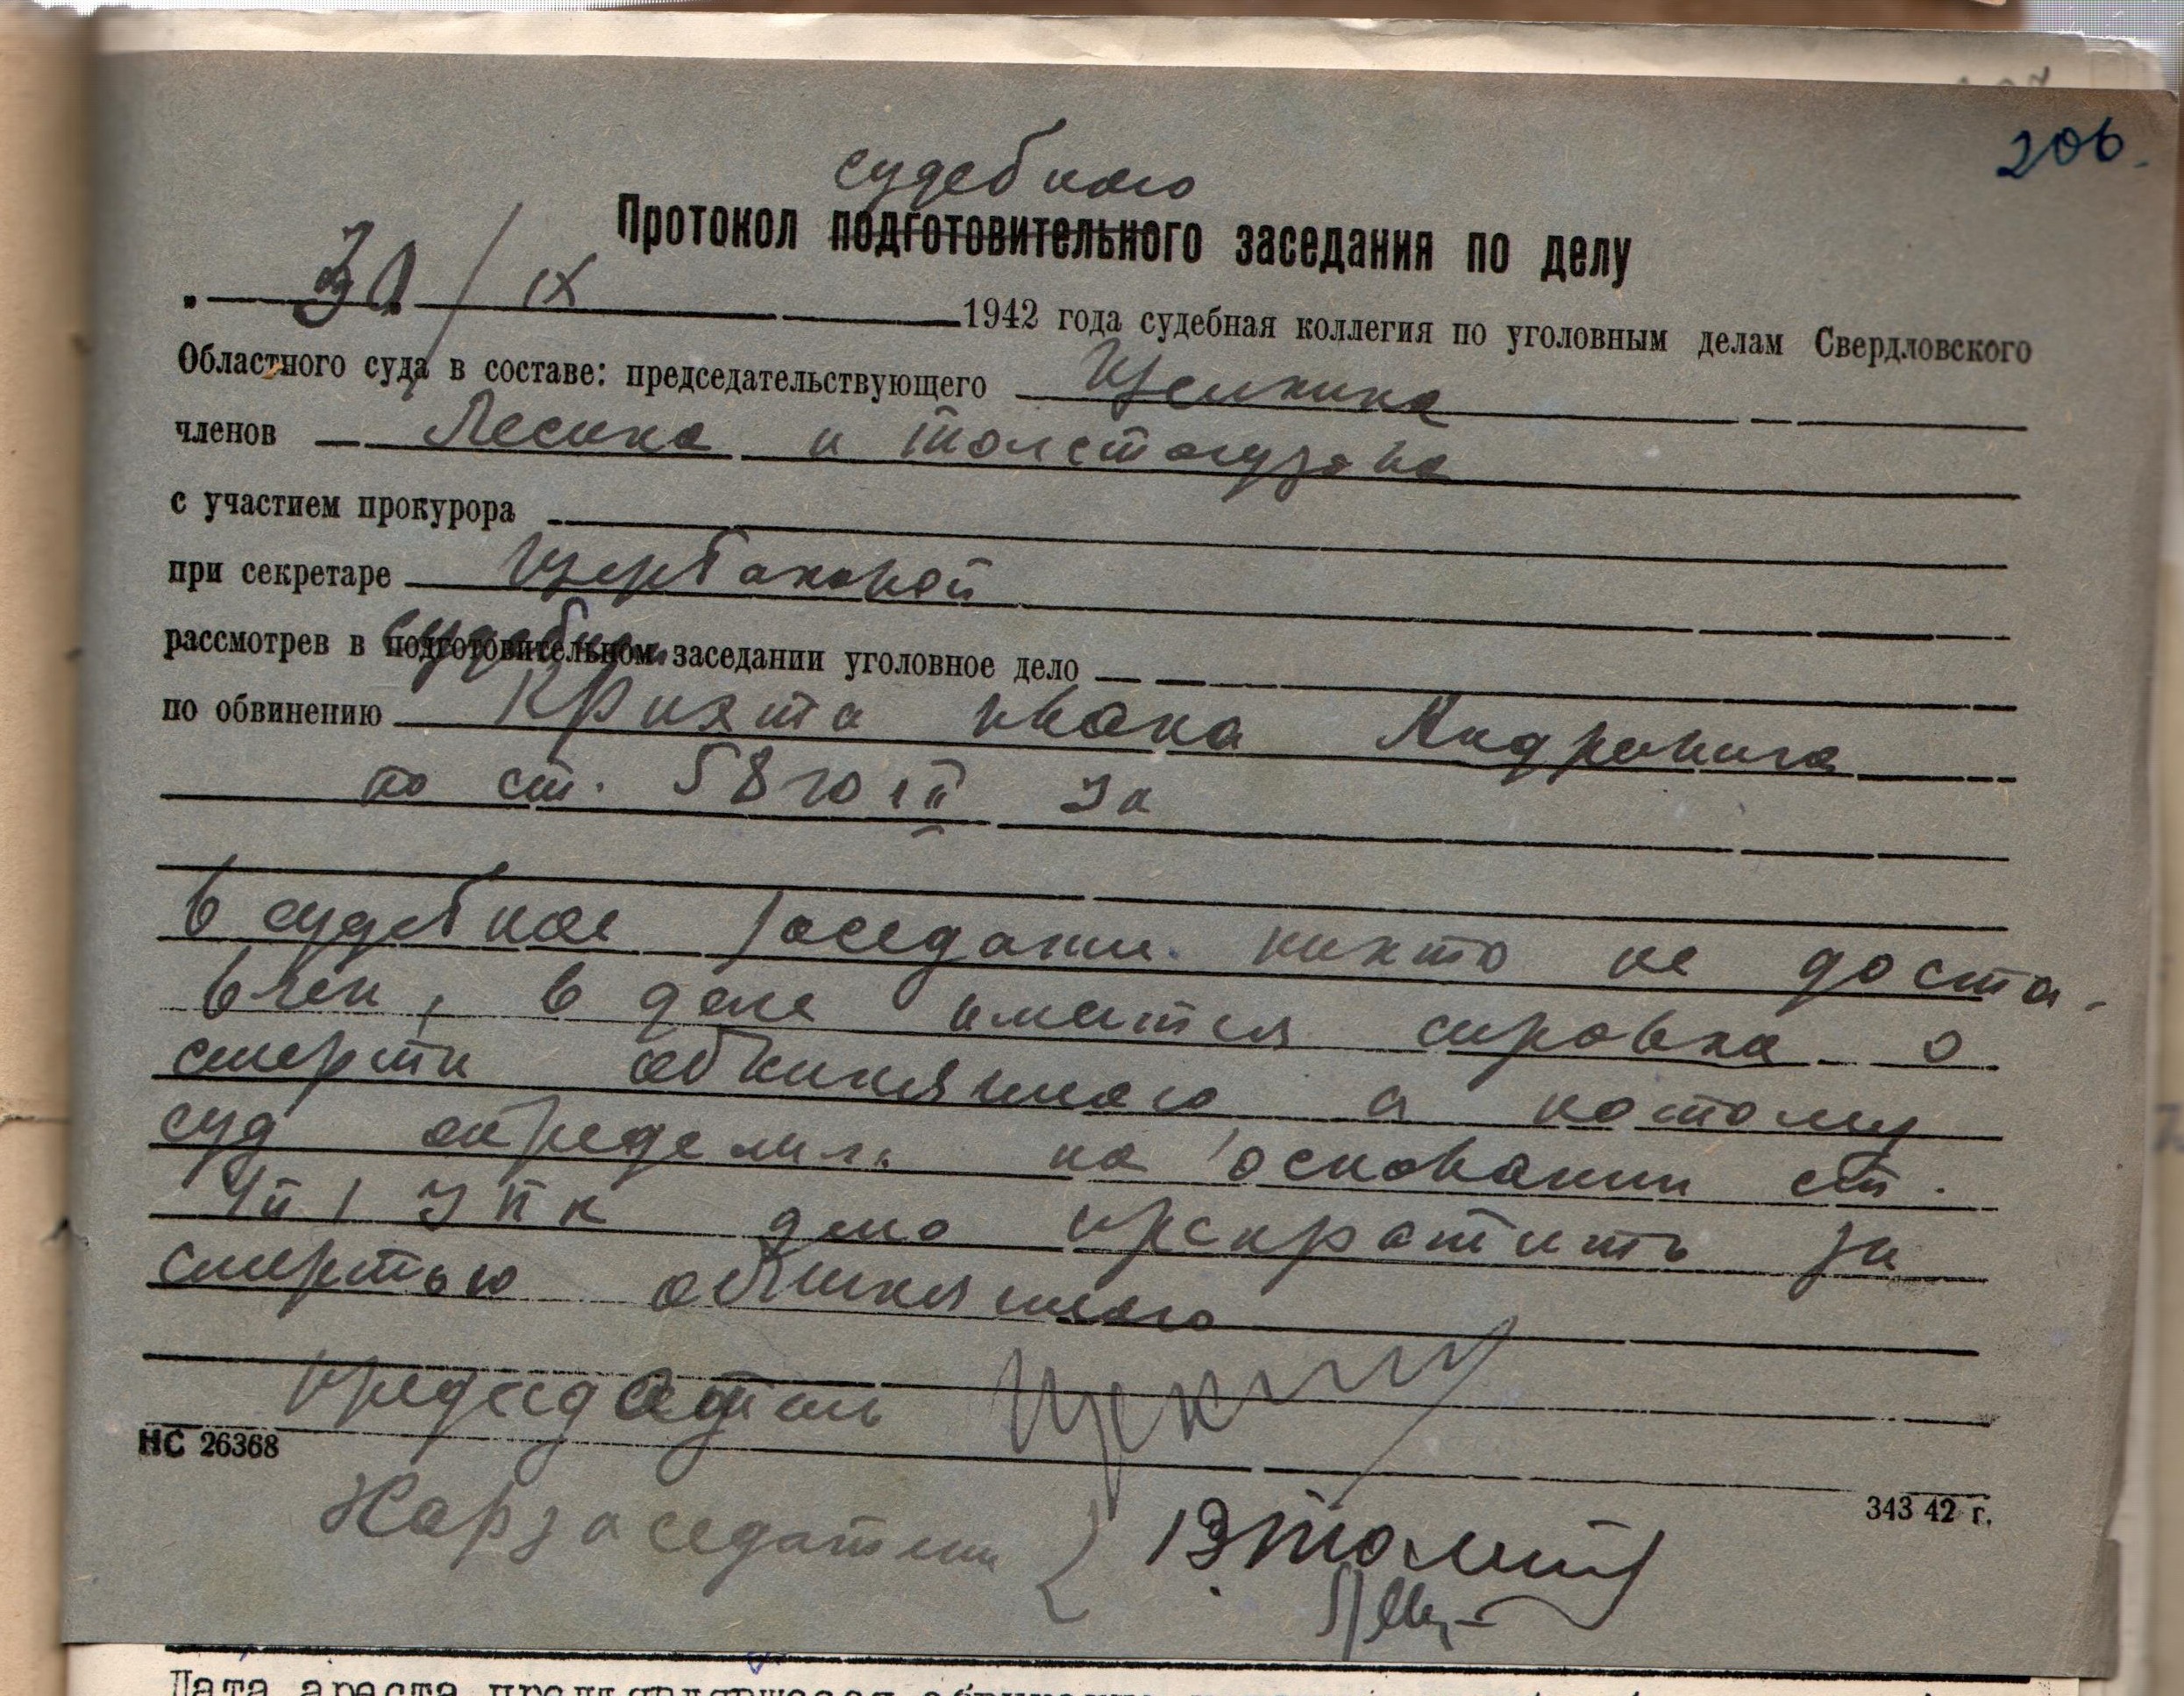 206.
судебного
Протокол подготовительного заседания по делу
„ 30/IX 1942 года судебная коллегия по уголовным делам Свердловского
Областного суда в составе: председательствующего Щепкина
членов Лесина и Толстогузова
с участием прокурора
при секретаре Щербаковой
рассмотрев в подготовительном заседании уголовное дело
по обвинению Крията Ивана Андреевича
по ст. 58 10 ч II УК
В судебное заседание никто не доста-
влен, в деле имеется справка о
смерти обвиняемого а потому
суд определил на основании ст.
4 п 1 УПК дело прекратить за
смертью обвиняемого
Председатель
НС 26368
343 42 г.
Нарзаседатели
Дата ареста